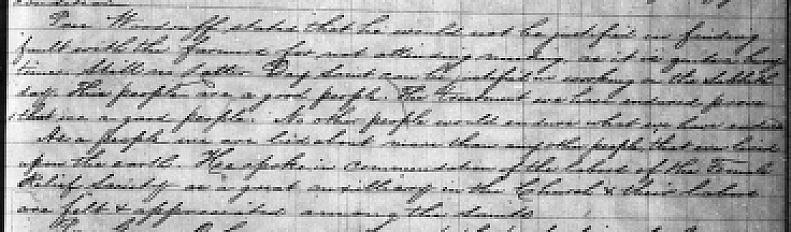 Pres Woodruff stated that he would not be justified in finding
fault with the Farmers for not attending meeting, as it is quite a busy
time. Still no father Day Saint can be justified in working on the Sabbath
day. The people are a good people. The treatment we have endured prove
that we are a good people. No other people would endure what we have
As a people we are lied about more than any other people that ever lived
upon the earth. He spoke in commendation of the labors of the Female
Relief Society as a great auxilliary in the Church & their labors
are felt & appreciated among the Saints